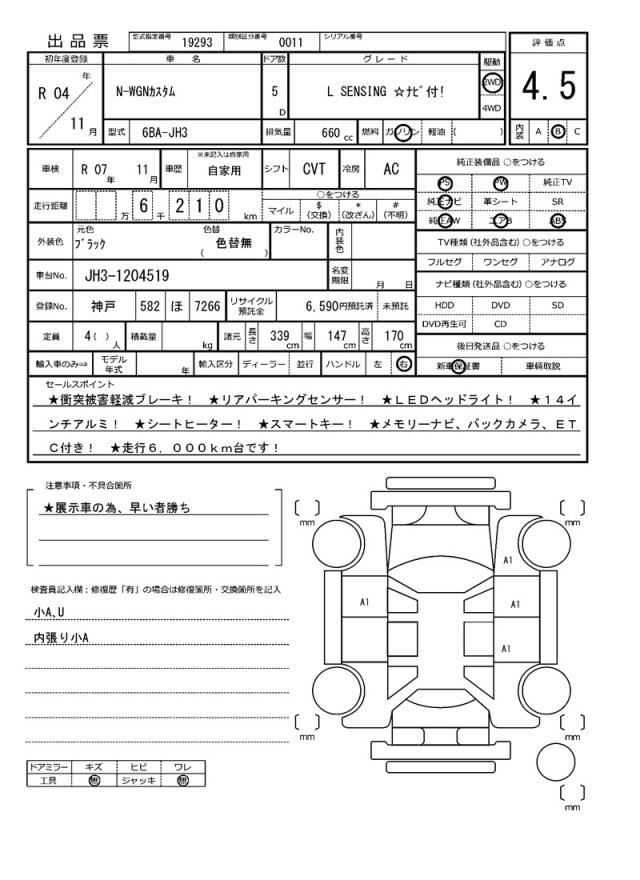 出品票 型式指定番号 19293 類別区分番号 0011 シリアル番号
評価点
4.5
初年度登録 車名 ドア数 グレード 駆動
R 04 年 11 月
N-WGNカスタム 5 D L SENSING ☆ナビ付! 2WD 4WD
型式 6BA-JH3 排気量 660 cc 燃料 ガソリン 軽油 ( )
内装 A B C
車検 R 07 年 11 月 車歴 ※未記入は自家用 自家用 シフト CVT 冷房 AC
走行距離 万 6 千 2 1 0 km
○をつける
マイル $(交換) *(改ざん) #(不明)
外装色 元色 ブラック 色替 色替無 ( ) カラーNo. 内装色
車台No. JH3-1204519 名変期限 月 日
登録No. 神戸 582 ほ 7266 リサイクル預託金 6,590円預託済 未預託
定員 4( ) 人 積載量 kg 諸元 長さ 339 cm 幅 147 cm 高さ 170 cm
輸入車のみ⇒ モデル年式 年 輸入区分 ディーラー 並行 ハンドル 左 右
純正装備品 ○をつける
PS PW 純正TV
純正ナビ 革シート SR
純正AW エアB ABS
TV種類 (社外品含む) ○をつける
フルセグ ワンセグ アナログ
ナビ種類 (社外品含む) ○をつける
HDD DVD SD
DVD再生可 CD
後日発送品 ○をつける
新車保証書 車輌取説
セールスポイント
★衝突被害軽減ブレーキ! ★リアパーキングセンサー! ★LEDヘッドライト! ★14イ
ンチアルミ! ★シートヒーター! ★スマートキー! ★メモリーナビ、バックカメラ、ET
C付き! ★走行6,000km台です!
注意事項・不具合箇所
★展示車の為、早い者勝ち
検査員記入欄:修復歴「有」の場合は修復箇所・交換箇所を記入
小A、U
内張り小A
ドアミラー キズ ヒビ ワレ
工具 無 ジャッキ 無
mm
mm
A1
A1
A1
A1
mm
mm
mm